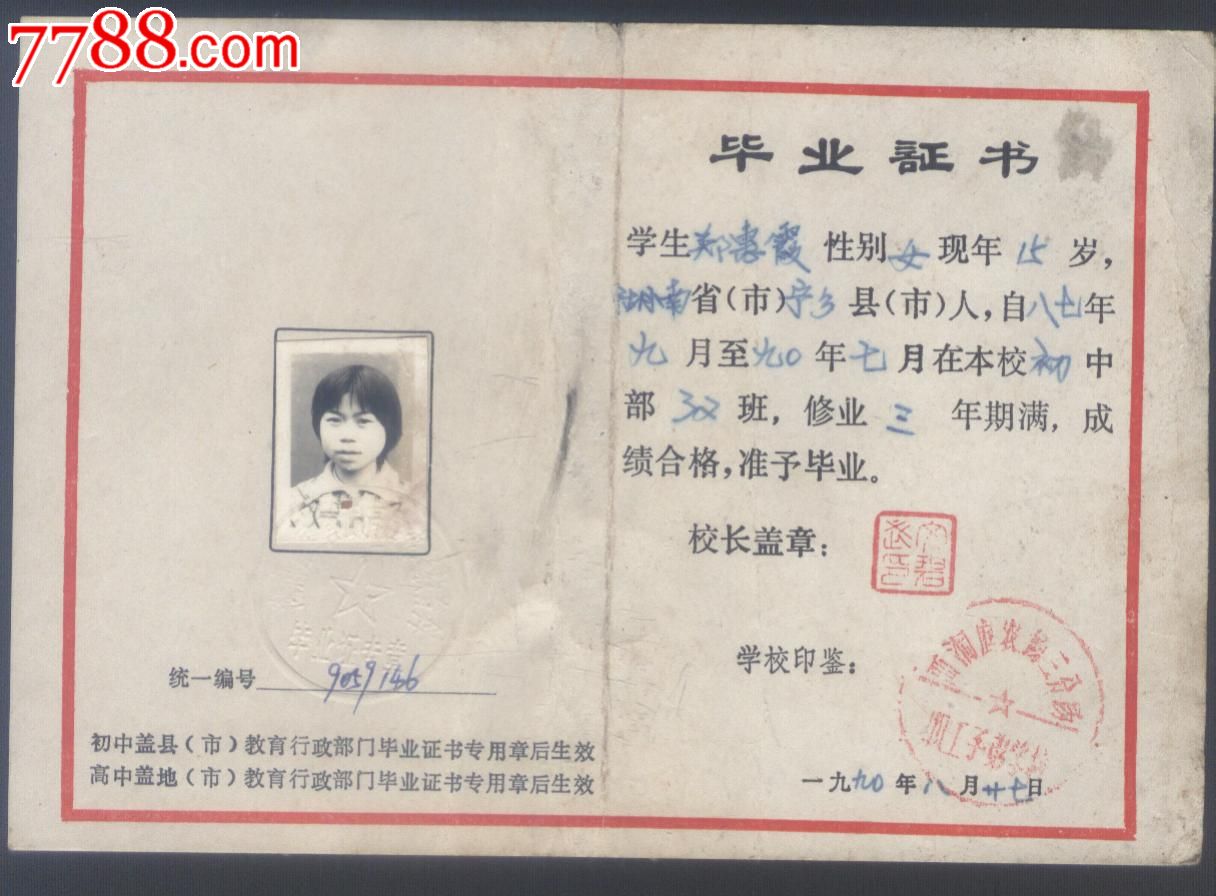 7788.com
毕业証书
学生郑惠霞 性别女现年15岁，
湖南省（市）宁乡县（市）人，自八七年
九月至九〇年七月在本校初中
部 班，修业三年期满，成
绩合格，准予毕业。
校长盖章：
学校印鉴：
职工子弟学校
一九九〇年八月廿七日
毕业证专章
统一编号 9059146
初中盖县（市）教育行政部门毕业证书专用章后生效
高中盖地（市）教育行政部门毕业证书专用章后生效